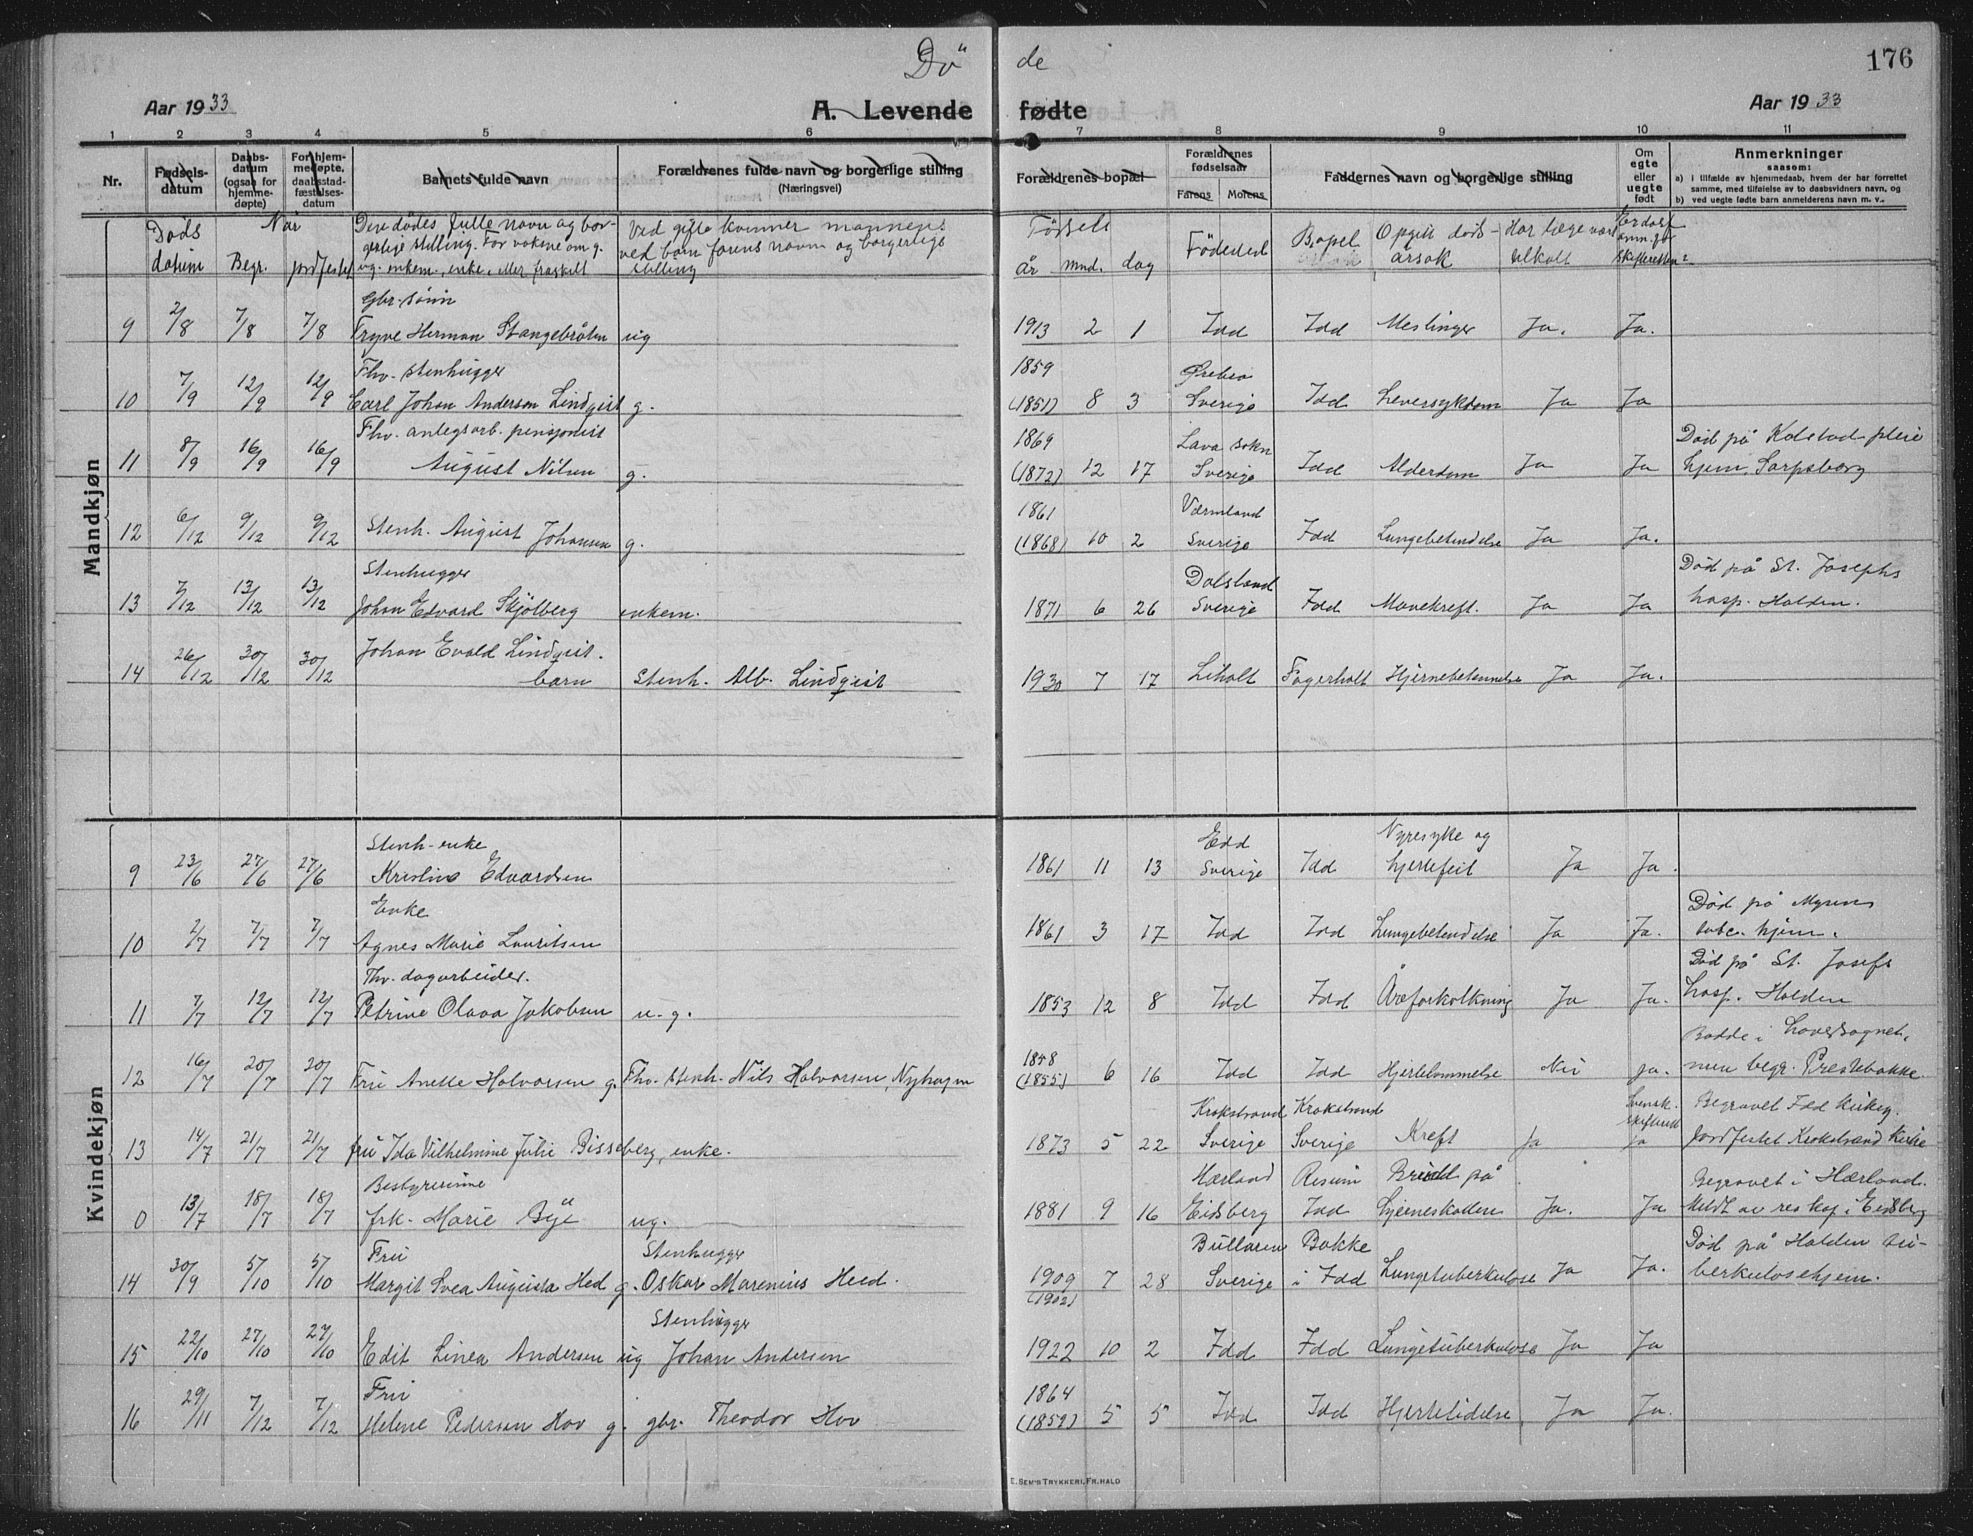 Dö" de
176
Aar 1933
A. Levende fødte
Aar 1933
1 2 3 4 5 6 7 8 9 10 11
Nr. Fødsels-datum Daabs-datum (ogsaa for hjemme-døpte) For hjem-medøpte, daabsstad-fæstelses-datum Barnets fulde navn Forældrenes fulde navn og borgerlige stilling (Næringsvei) Forældrenes bopæl Forældrenes fødselsaar Farens Morens Faddernes navn og borgerlige stilling Om egte eller uegte født Anmerkninger saasom: a) i tilfælde av hjemmedaab, hvem der har forrettet samme, med tilføielse av to daabsvidners navn, og b) ved uegte fødte barn anmelderens navn m. v..
Døds datum Når Begr. jordfestet Den dødes fulle navn og bor-gerlige stilling. For voksne om g. ug. enkem., enke, eller fraskilt Ved gifte kvinner mannens ved barn farens navn og borgerlige stilling Fødsels år mnd. dag Fødested Bopel Opgitt døds-årsak Har læge vært tilkalt Er dødsf. anm. for skifteretten?
Mandkjøn
9 2/8 7/8 7/8 Gbr. sønn Trygve Herman Stangebråten ug 1913 2 1 Idd Idd Meslinger Ja. Ja.
10 7/9 12/9 12/9 Fhv. stenhugger Carl Johan Anderson Lindqvist g. 1859 (1851) 8 3 Ørebro Sverige Idd Leversykdom Ja Ja
11 8/9 16/9 16/9 Fhv. anlegsarb. pensjonist August Nilsen g. 1869 (1872) 12 17 Lava sokn Sverige Idd Alderdom Ja Ja Død på Kolstad pleie hjem, Sarpsborg
12 6/12 9/12 9/12 Stenh. August Johansen g. 1861 (1868) 10 2 Värmland Sverige Idd Lungebetendelse Ja Ja.
13 7/12 13/12 13/12 Stenhugger Johan Edvard Skjølberg enkem. 1871 6 26 Dalsland Sverige Idd Mavekreft. Ja Ja Død på St. Josephs hosp. Halden.
14 26/12 30/12 30/12 Johan Evald Lindqvist. barn Stenh. Alb. Lindqvist 1930 7 17 Liholt Fagerholt Hjernebetennelse Ja Ja.
Kvindekjøn
9 23/6 27/6 27/6 Stenh-enke Kristine Edvardsen 1861 11 13 Edd Sverige Idd Nyresyke og hjertefeil Ja Ja.
10 2/7 7/7 7/7 Enke Agnes Marie Lauritsen 1861 3 17 Idd Idd Lungebetendelse Ja Ja. Død på Mysens tubc. hjem.
11 7/7 12/7 12/7 Fhv. dagarbeider. Petrine Olava Jakobsen u. g. 1853 12 8 Idd Idd Åreforkalkning Ja Ja. Død på St. Josefs hosp. Halden
12 16/7 20/7 20/7 Fru Anette Halvorsen g. Fhv. stenh. Nils Halvorsen, Nyhagen 1858 (1855) 6 16 Idd Idd Hjertelammelse Nei ja. Bodde i hovedsognet, men begr. Prestebakke.
13 14/7 21/7 21/7 fru Ida Vilhelmine Julie Bisseberg, enke. 1873 5 22 Krokstrand Sverige Krokstrand Sverige Kreft Ja Svensk. skifterett ja Begravet Idd kirkeg. Jordfestet Krokstrand kirke
0 13/7 18/7 18/7 Bestyrerinne frk. Marie Bye ug. 1881 9 16 Hærland Eidsberg Risum Idd Brudd på hjerneskallen Ja. Ja Begravet i Hærland. Meldt av res kap. i Eidsberg
14 30/9 5/10 5/10 Fru Margit Svea Augusta Hed g. Stenhugger Oskar Marenius Heed. 1909 (1902) 7 28 Bullaren Sverige Bakke i Idd Lungetuberkulose Ja Ja. Død på Halden tu-berkulosehjem.
15 22/10 27/10 27/10 Edit Linea Andersen ug Stenhugger Johan Andersen 1922 10 2 Idd Idd Lungetuberkulose Ja Ja
16 29/11 7/12 7/12 Fru Helene Pedersen Hov g. gbr. Theodor Hov 1864 (1859) 5 5 Idd Idd Hjertelidelse, Ja Ja.
E. SEM'S TRYKKERI, FR.HALD